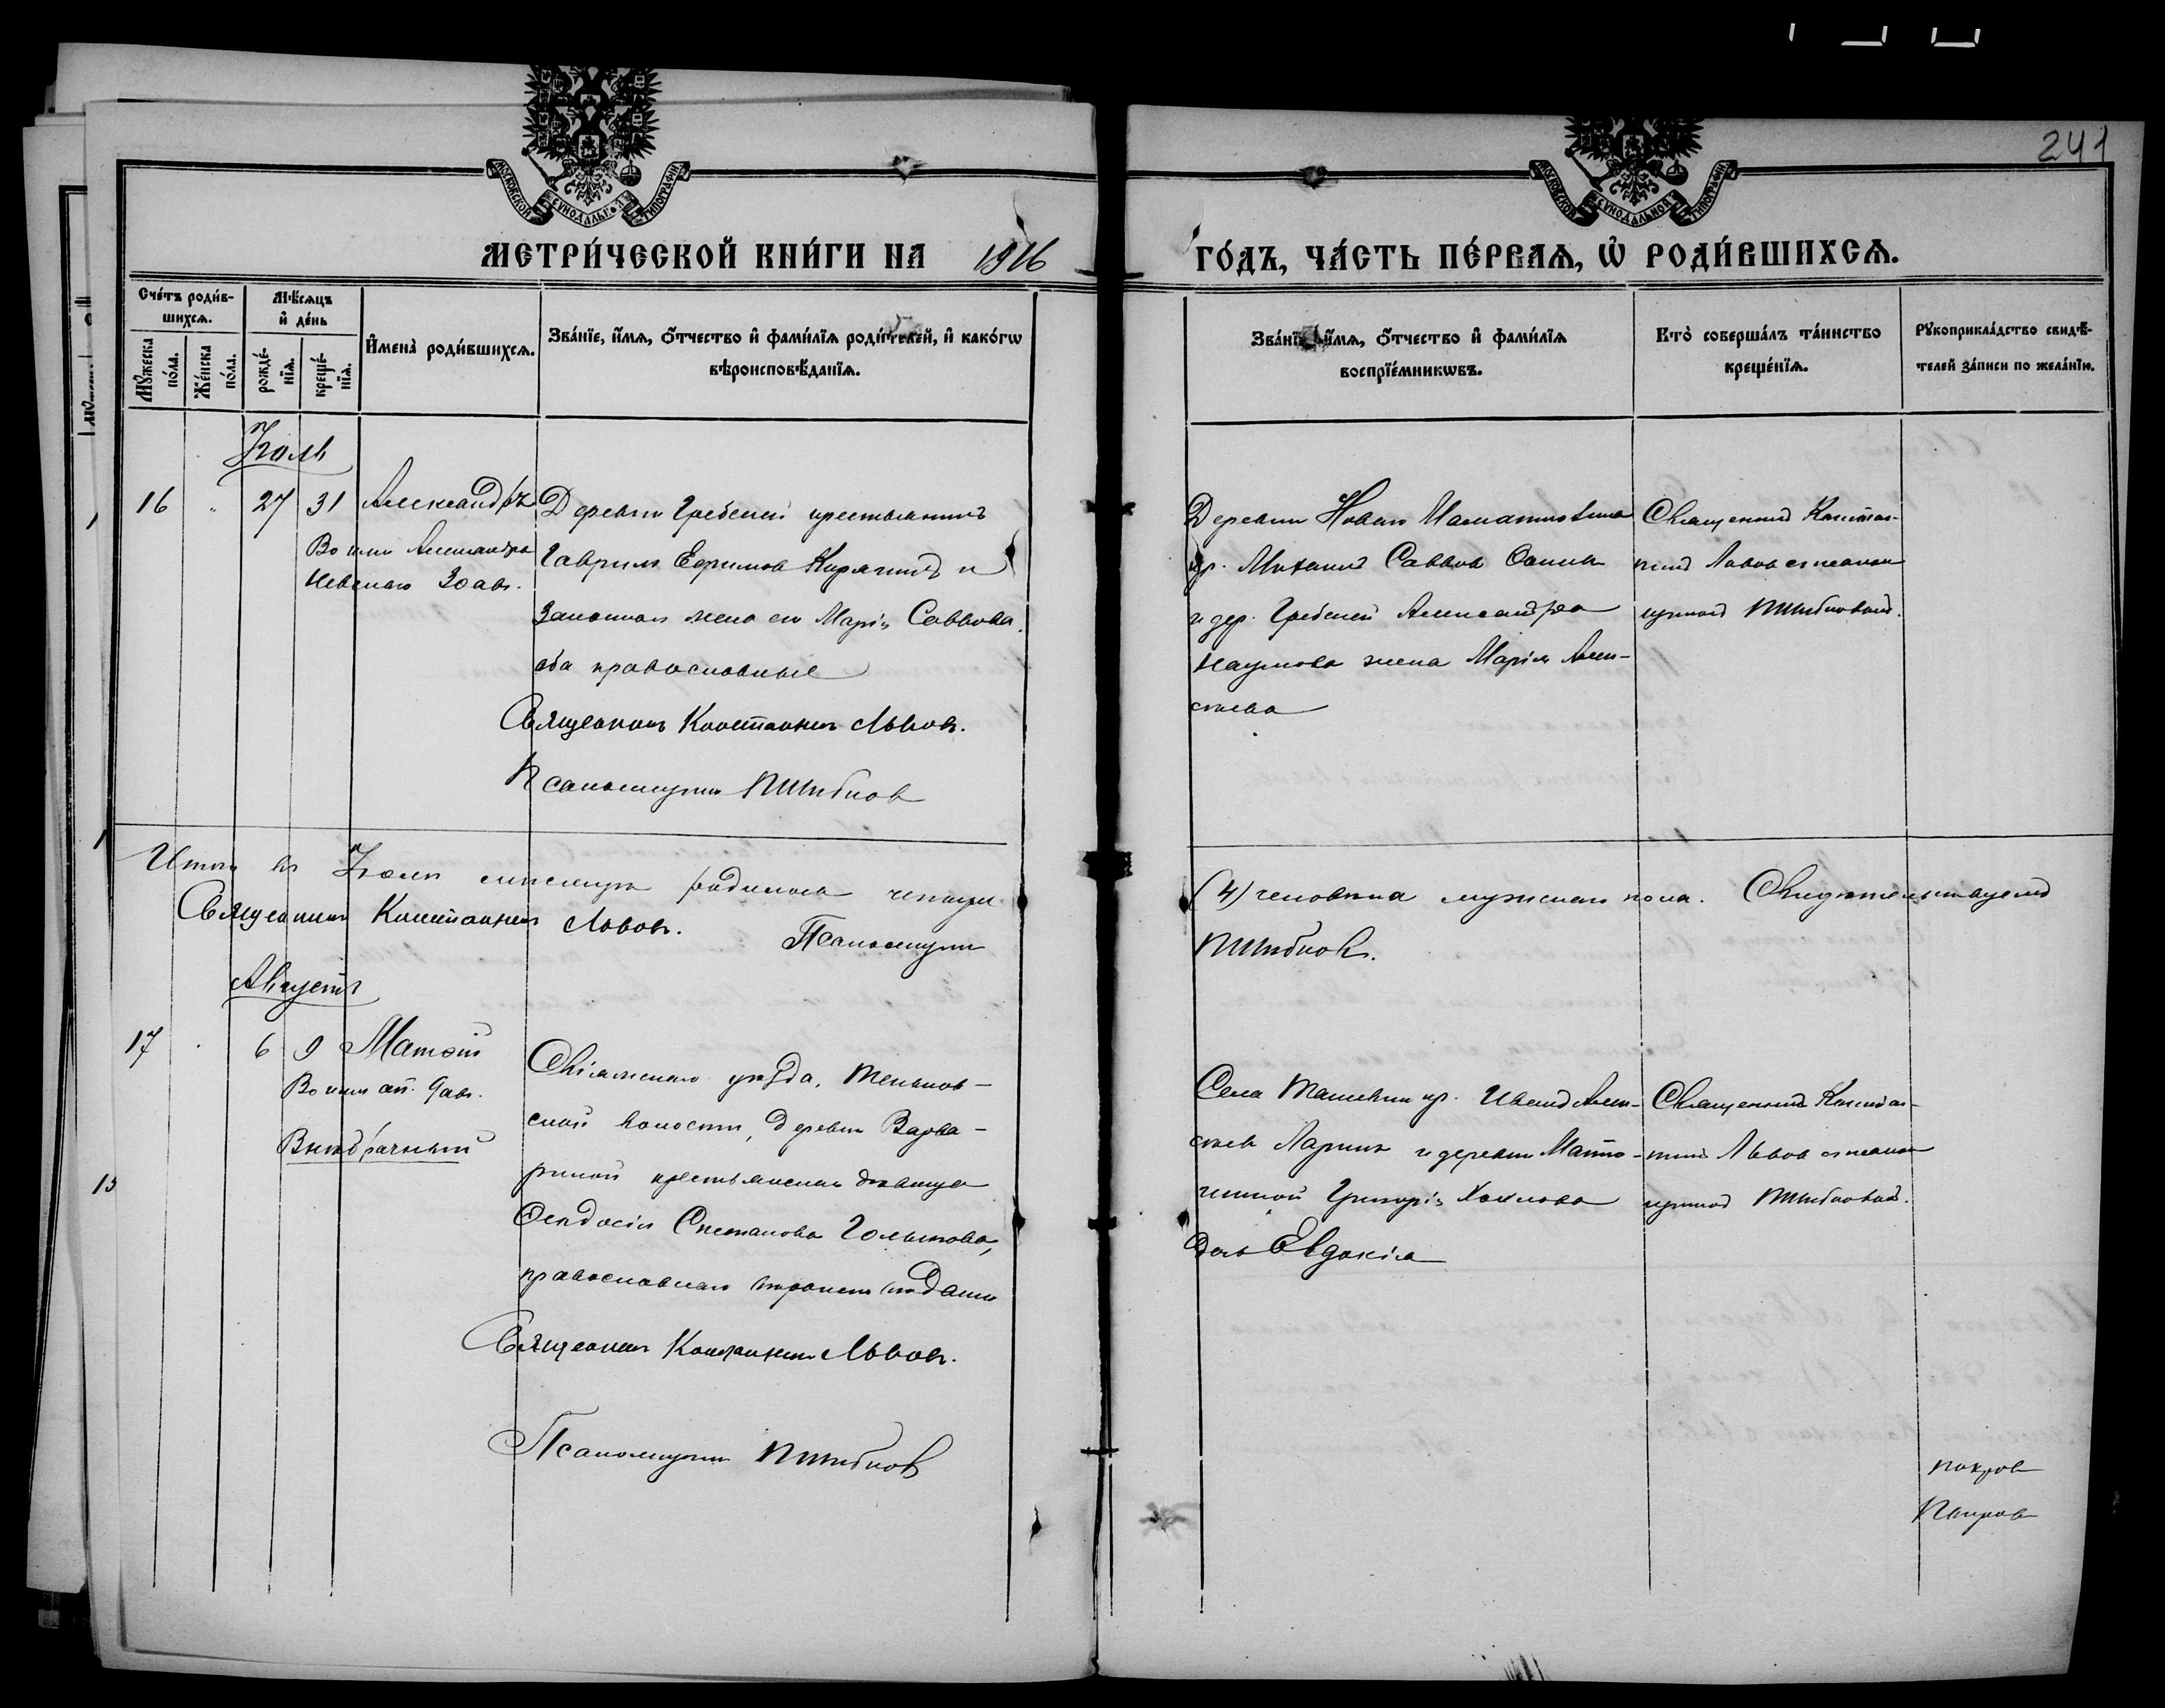 241
МОСКОВСКОЙ СУНОДАЛЬНОЙ ТИПОГРАФІИ
МОСКОВСКОЙ СУНОДАЛЬНОЙ ТИПОГРАФІИ
МЕТРИ́ЧЕСКОЙ КНИ́ГИ НА 1916 ГО́ДЪ, ЧА́СТЬ ПЕ́РВАѦ, Ѡ҆ РОДИ́ВШИХСѦ.
Сче́тъ роди́в-
шихсѧ.
Мꙋ́жеска по́ла.
Же́нска по́ла.
Мѣ́сѧцъ
и҆ де́нь
рожде́-
нїѧ.
креще́-
нїѧ.
И҆мена̀ роди́вшихсѧ.
Зва́нїе, и҆́мѧ, ѻ҆́тчество и҆ фами́лїѧ роди́телей, и҆ како́гѡ
вѣроисповѣ́данїѧ.
Зва́нїе, и҆́мѧ, ѻ҆́тчество и҆ фами́лїѧ
воспрїе́мникѡвъ.
Кто̀ соверша́лъ та́инство
креще́нїѧ.
Рꙋкоприкла́дство свидѣ́-
телей за́писи по жела́нїю.
Іюль
16 27 31 Александръ
Во имя Александра
Невскаго 30 авг.
Деревни Гребеней крестьянинъ
Гаврилъ Ефимовъ Карягинъ и
законная жена его Марія Саввова
оба православные
Священникъ Константинъ Львовъ.
Псаломщикъ
Деревни Новаго
кр. Михаилъ Саввовъ
и дер. Гребеней Александра
Наумова жена Марія Алек-
сѣева
Священникъ Констан-
тинъ Львовъ съ псалом-
щикомъ
Итого въ Іюлѣ мѣсяцѣ родилось четыре
(4) человѣка мужскаго пола. Свидѣтельствуемъ
Священникъ Константинъ Львовъ. Псаломщикъ
Августъ
17 6 9 Матѳій
Во имя ап. 9 авг.
Внѣбрачный
Свіяжскаго уѣзда, Теньков-
ской волости, деревни Варва-
риной крестьянская дѣвица
Ѳеодосія Степанова
православнаго вѣроисповѣданія
Священникъ Константинъ Львовъ.
Псаломщикъ
Села Ташевки кр. Иванъ Алек-
сѣевъ Ларинъ и деревни
Григорія Хохлова
дочь Евдокія
Священникъ Констан-
тинъ Львовъ съ псалом-
щикомъ
покров
Покров